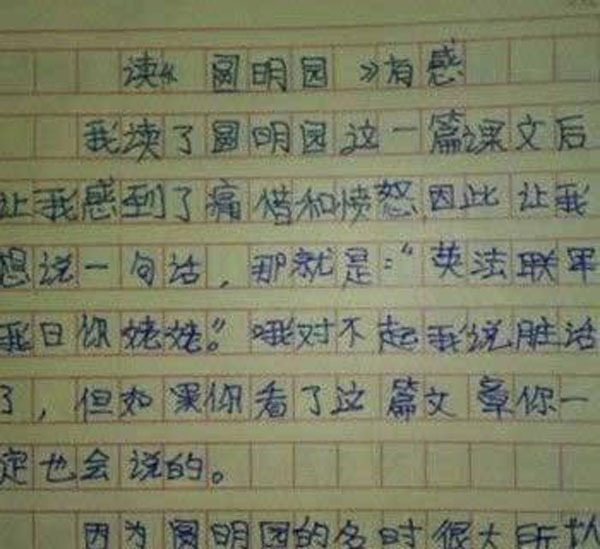 读《圆明园》有感
我读了圆明园这一篇课文后
让我感到了痛惜和愤怒,因此让我
想说一句话,那就是:“英法联军
我日你姥姥。”哦对不起我说脏话
了,但如果你看了这篇文章你一
定也会说的。
因为圆明园的名时很大所以